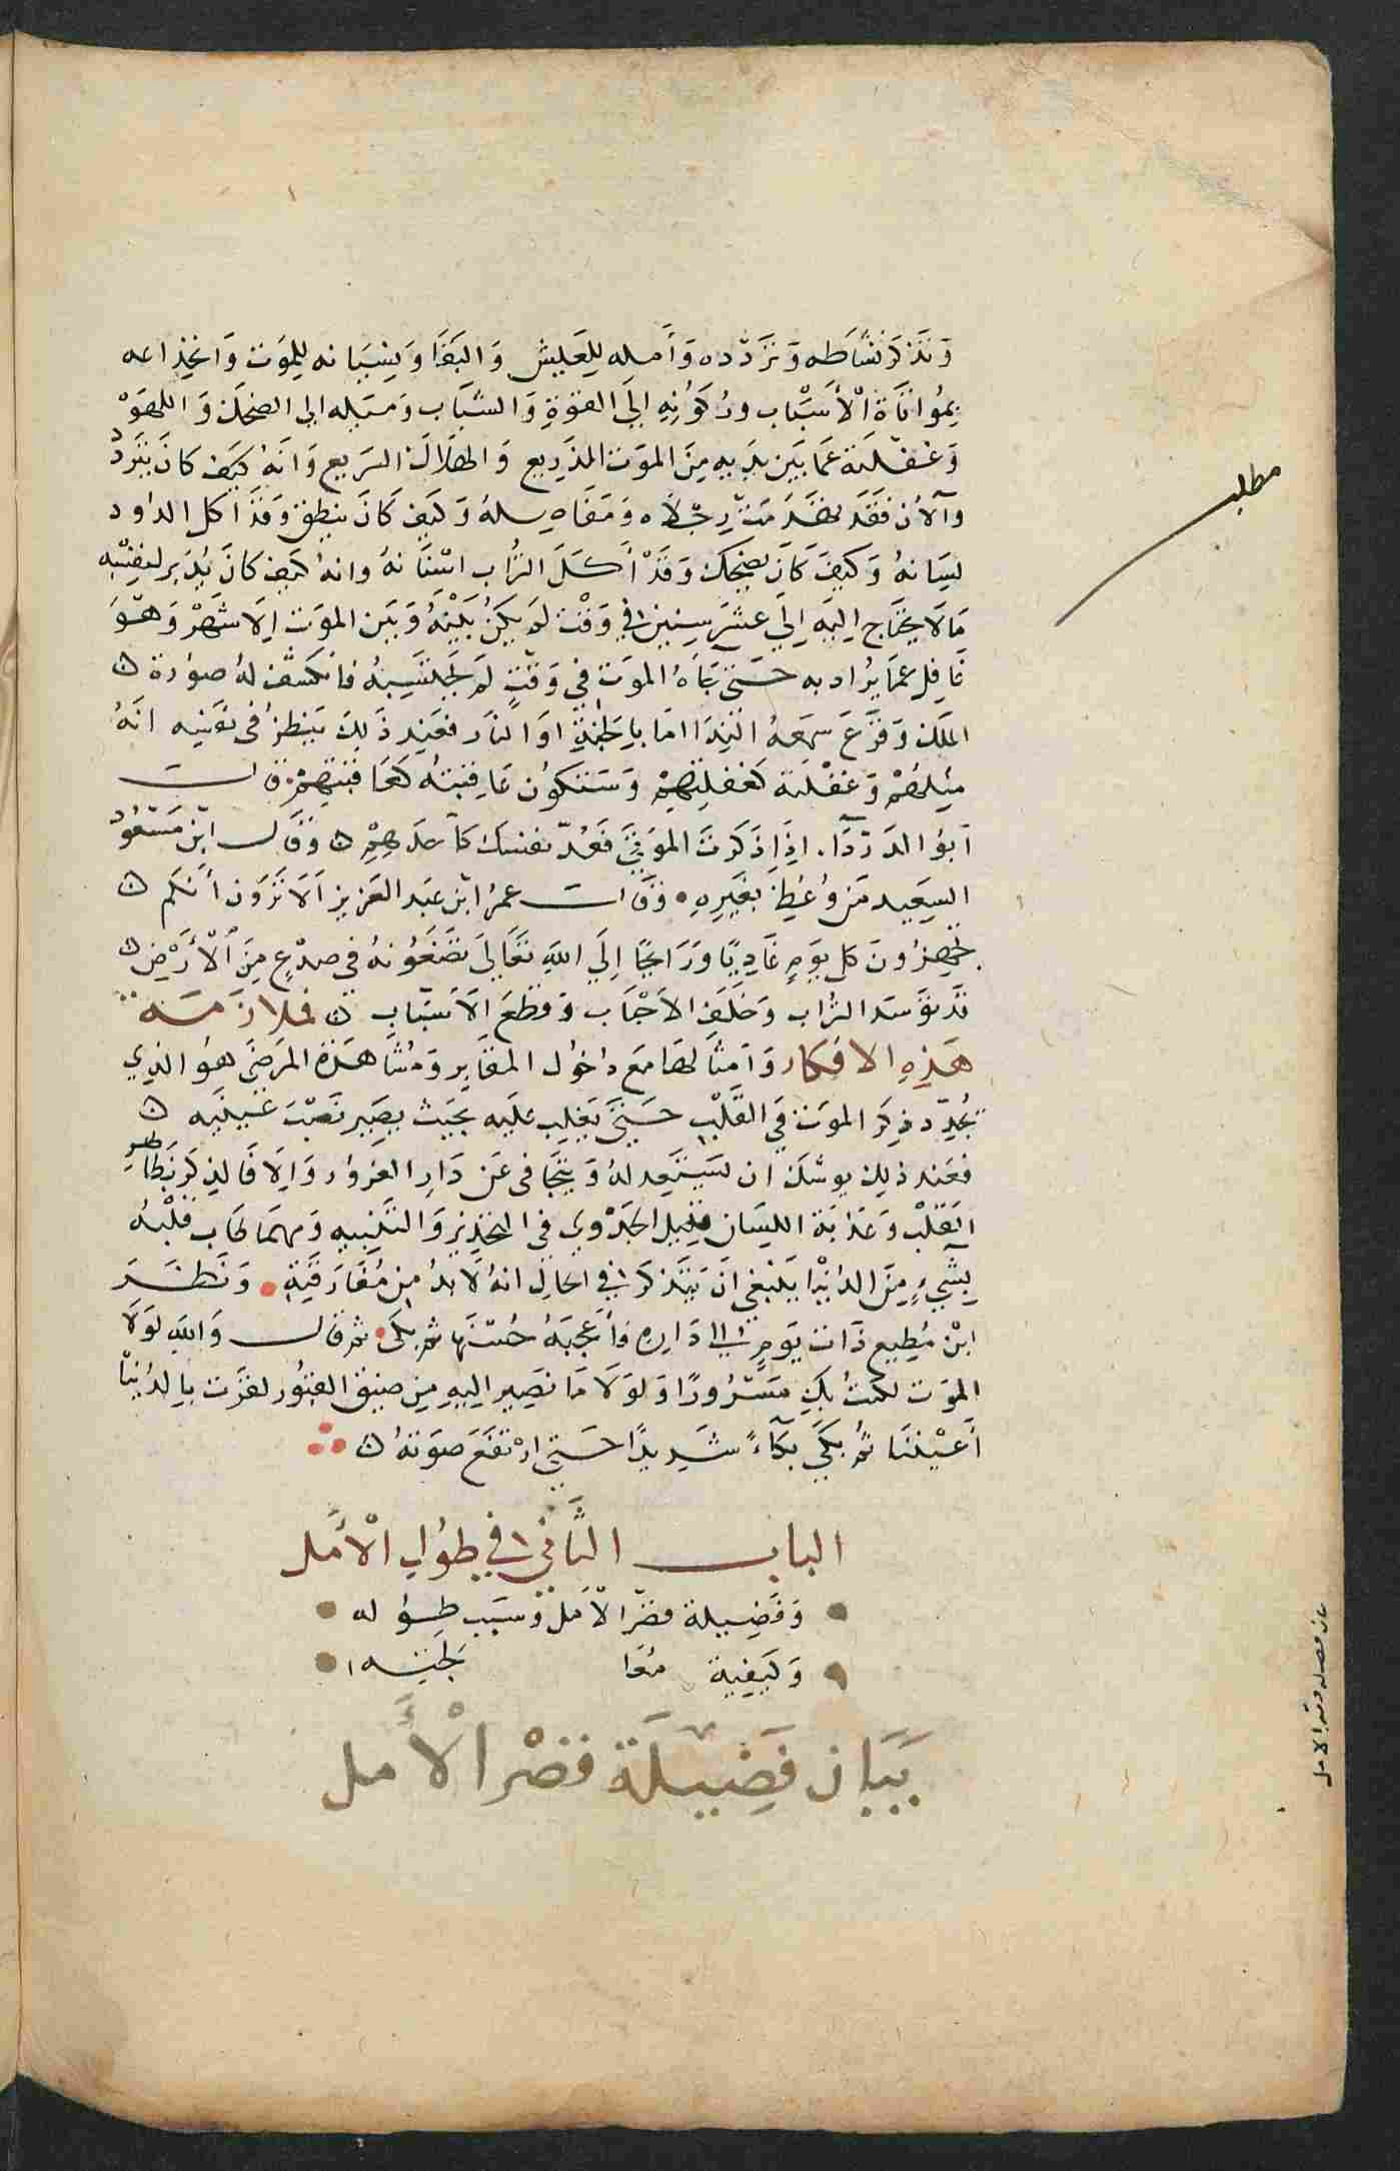 وَتَذكرَ نشَاطه وَتَرَدّده وَأَمله لِلعَيش وَالبَقَا وَنِسيَانه لِلمَوت وَانخِذاعه
بِمُواتَاة الأَسبَاب ورُكوُنِهِ اِلَى القوّةِ وَالشّبَاب وَمَيله الى الضحَك وَاللّهوْ
وَغفلَته عَمَا بَين يدَيهِ مِنَ المَوت الذَرِيع وَالهَلاَك السَريع وَانهُ كيَف كانَ يترَددُ
وَالآن فَقَد تهَدمَت رِجلاَه وَمَفاَصِلهُ وَكَيَف كَانَ ينطِق وَقَد اَكل الدُود
لِسَانهُ وَكَيفَ كَانَ يضحَك وَقَدْ أكَلَ التُراب اسْنَانهُ وانهُ كيَف كانَ يُدَبر لِنفسِه
مَا لاَ يحتَاج اِليَه اِلي عَشرَ سِنين في وَقتْ لَم يَكنُ بَيْنهُ وَبَين المَوت اِلا شَهرْ وَهوَ
غَافِل عمَا يُراد به حَتى جَاهُ المَوت في وَقتٍ لَم يَحتسِبهُ فانكشَف لهُ صوُرة
الملَك وَقرَعَ سَمَعهُ النِدَا امَا بِالجَنةِ اوَ النَار فعَند ذَلِك يَنظرُ في نفسِه انهُ
مِثلهُمْ وَغفْلتَه كغفلتِهِمْ وَسَتكوُن عَاقبَتهُ كعَاقبتِهِمْ قالـــ
اَبوُ الدَردَا . اِذَا ذَكرتَ المَوتَى فَعُدّ نفسَك كأحَدِهِمْ وَقَالــ ابْن مَسعُود
السَعِيد مَن وُعِظ بغَيرِهِ وَقَالــ عمرُ ابْن عَبد العَزيز اَلاَ تَرَون أنكم
تجهِزوُنَ كل يَوَمٍ غَادِيًا وَرَايحًا اِلَي الله تعَالىَ تضَعُونهُ في صدْعٍ مِنَ الأَرْض
قَد توَسَد التراب وَخلَف الاَحبَاب وَقطعَ الاَسبَاب فملازَمَة
هَذِهِ الافكار وَاَمثَالهَا مَع دُخوُل المقَابِر وَمُشَاهَدَة المَرضَى هوُ الذي
يُجدِّد ذِكرَ المَوت فِي القَلْب حَتىَّ يَغلِب عليَه بحَيث يصِير نصْبَ عَينيَه
فعَند ذَلِك يوشَك ان يَستَعِد لهُ وَيتجَافى عَن دَار الغرُور وَاِلا فَالذِكر بظَاهر
القلْب وَعَذَبَة اللِسَان قلِيل الجَدْوي في التحذِير وَالتَنبِيه وَمهمَا طَاب قلْبهُ
بِشَيءٍ مِنَ الدُنيْا يَنبَغي اَن يَتَذكرَ في الحال انهُ لاَبُدّ مِن مُفَارَقتِهِ وَنَظَـرَ
ابْن مُطِيع ذَات يَومٍ الى دَارِه فأَعْجَبَهُ حُسْنهَا ثم بكَى ثم قالــ وَالله لَولاَ
الموَت لكنتُ بكِ مَسْرُورًا وَلَولاَ مَا نَصِير اِليهِ مِن ضِيق القبُور لقَرّت بِالدُنيْا
أَعيْننَا ثم بكَي بكآءً شَدِيدًا حَتى ارْتفَعَ صَوَتهُ
البابــ الثَّاني في طوُل الْأَمل
وَفَضِيلة قصْر الأَمل وَسبَب طـوُله
وَكيَفِية مُعَا لجَتـه
بَيَان فَضِيلَة قصْر الْأَمل
مطلب
بيان فضيلة قصر الامل